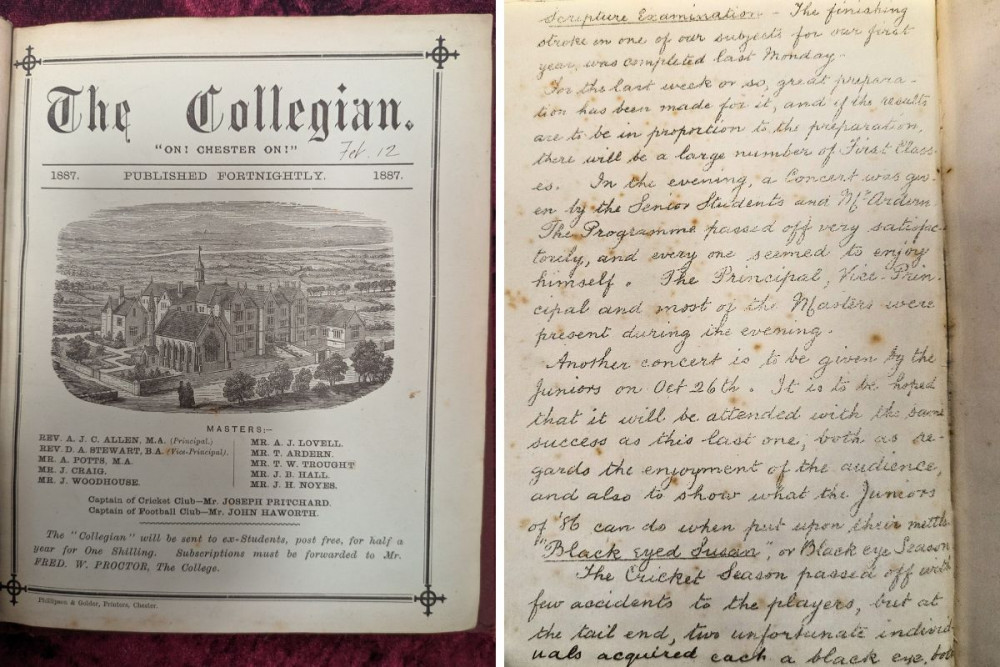 The Collegian.
"ON! CHESTER ON!" Feb. 12
1887. PUBLISHED FORTNIGHTLY. 1887.
MASTERS:—
REV. A. J. C. ALLEN, M.A. (Principal.)
REV. D. A. STEWART, B.A. (Vice-Principal).
MR. A. POTTS, M.A.
MR. J. CRAIG.
MR. J. WOODHOUSE.
MR. A. J. LOVELL.
MR. T. ARDERN.
MR. T. W. TROUGHT
MR. J. B. HALL.
MR. J. H. NOYES.
Captain of Cricket Club—Mr. JOSEPH PRITCHARD.
Captain of Football Club—Mr. JOHN HAWORTH.
The "Collegian" will be sent to ex-Students, post free, for half a
year for One Shilling. Subscriptions must be forwarded to Mr.
FRED. W. PROCTOR, The College.
Phillipson & Golder, Printers, Chester.
Scripture Examination – The finishing
stroke in one of our subjects for our first
year, was completed last Monday.
For the last week or so, great prepara-
tion has been made for it, and if the results
are to be in proportion to the preparation,
there will be a large number of First Class-
es. In the evening, a Concert was giv-
en by the Senior Students and Mr Ardern.
The Programme passed off very satisfac-
torily, and every one seemed to enjoy
himself. The Principal, Vice-Prin-
cipal and most of the Masters were
present during the evening.
Another concert is to be given by the
Juniors on Oct 26th. It is to be hoped
that it will be attended with the same
success as this last one, both as re-
gards the enjoyment of the audience,
and also to show what the Juniors
of '86 can do when put upon their mettle
"Black Eyed Susan", or Black eye Season
The Cricket Season passed off with
few accidents to the players, but at
the tail end, two unfortunate individ-
uals acquired each a black eye, both